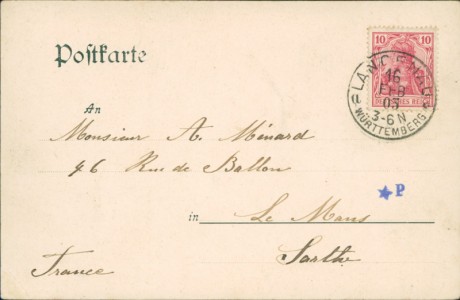 Postkarte
10 10
16
FEB
03
3-6 N
WÜRTTEMBERG
An
Monsieur A. Ménard
46 Rue de Ballon
P
in Le Mans
Sarthe
France